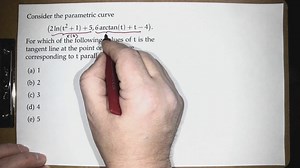 Consider the parametric curve
(2 ln(t² + 1) + 5, 6 arctan(t) + t − 4).
x(t)
For which of the following values of t is the
tangent line at the point
corresponding to t
(a) 1
(b) 2
(c) 3
(d) 4
(e) 5